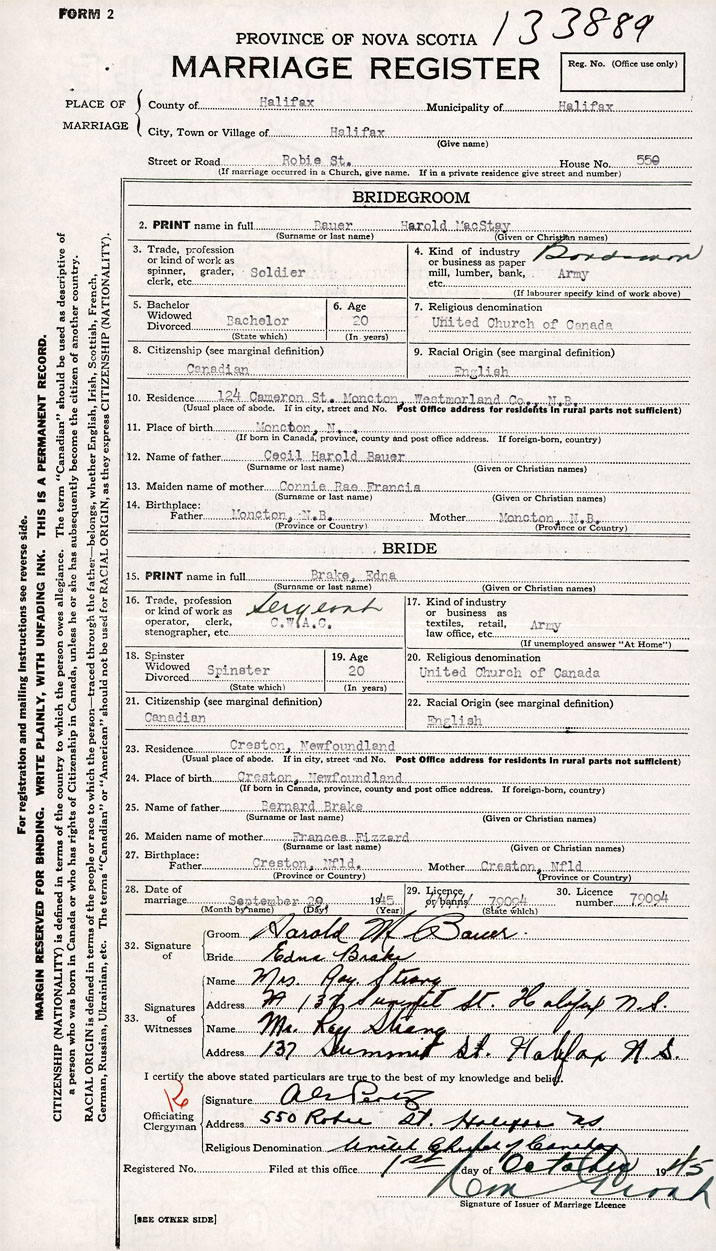 FORM 2
133889
PROVINCE OF NOVA SCOTIA
MARRIAGE REGISTER
Reg. No. (Office use only)
PLACE OF MARRIAGE
County of Halifax Municipality of Halifax
City, Town or Village of Halifax
(Give name)
Street or Road Robie St. House No. 550
(If marriage occurred in a Church, give name. If in a private residence give street and number)
BRIDEGROOM
2. PRINT name in full Bauer Harold MacStay
(Surname or last name) (Given or Christian names)
3. Trade, profession or kind of work as spinner, grader, clerk, etc. Soldier
4. Kind of industry or business as paper mill, lumber, bank, etc. Army
(If labourer specify kind of work above)
5. Bachelor Widowed Divorced Bachelor
(State which)
6. Age 20
(In years)
7. Religious denomination
United Church of Canada
8. Citizenship (see marginal definition)
Canadian
9. Racial Origin (see marginal definition)
English
10. Residence 124 Cameron St. Moncton, Westmorland Co., N.B.
(Usual place of abode. If in city, street and No. Post Office address for residents in rural parts not sufficient)
11. Place of birth Moncton, N. .
(If born in Canada, province, county and post office address. If foreign-born, country)
12. Name of father Cecil Harold Bauer
(Surname or last name) (Given or Christian names)
13. Maiden name of mother Connie Rae Francis
(Surname or last name) (Given or Christian names)
14. Birthplace:
Father Moncton, N.B. Mother Moncton, N.B.
(Province or Country) (Province or Country)
BRIDE
15. PRINT name in full Brake, Edna
(Surname or last name) (Given or Christian names)
16. Trade, profession or kind of work as operator, clerk, stenographer, etc. Sergeant C.W.A.C.
17. Kind of industry or business as textiles, retail, law office, etc. Army
(If unemployed answer "At Home")
18. Spinster Widowed Divorced Spinster
(State which)
19. Age 20
(In years)
20. Religious denomination
United Church of Canada
21. Citizenship (see marginal definition)
Canadian
22. Racial Origin (see marginal definition)
English
23. Residence Creston, Newfoundland
(Usual place of abode. If in city, street and No. Post Office address for residents in rural parts not sufficient)
24. Place of birth Creston, Newfoundland
(If born in Canada, province, county and post office address. If foreign-born, country)
25. Name of father Bernard Brake
(Surname or last name) (Given or Christian names)
26. Maiden name of mother Frances Fizzard
(Surname or last name) (Given or Christian names)
27. Birthplace:
Father Creston, Nfld. Mother Creston, Nfld
(Province or Country) (Province or Country)
28. Date of marriage September 29 1945
(Month by name) (Day) (Year)
29. Licence or banns 79094
(State which)
30. Licence number 79094
32. Signature of
Groom Harold M Bauer.
Bride Edna Brake
33. Signatures of Witnesses
Name Mrs. Ray Strang
Address 137 Summit St. Halifax N.S.
Name Mr. Ray Strang
Address 137 Summit St. Halifax N.S.
I certify the above stated particulars are true to the best of my knowledge and belief.
Officiating Clergyman
Signature
Address 550 Robie St. Halifax NS
Religious Denomination United Church of Canada
Registered No. Filed at this office 1st day of October 1945
Signature of Issuer of Marriage Licence
[SEE OTHER SIDE]
For registration and mailing instructions see reverse side.
MARGIN RESERVED FOR BINDING. WRITE PLAINLY, WITH UNFADING INK. THIS IS A PERMANENT RECORD.
CITIZENSHIP (NATIONALITY) is defined in terms of the country to which the person owes allegiance. The term "Canadian" should be used as descriptive of
a person who was born in Canada or who has rights of Citizenship in Canada, unless he or she has subsequently become the citizen of another country.
RACIAL ORIGIN is defined in terms of the people or race to which the person—traced through the father—belongs, whether English, Irish, Scottish, French,
German, Russian, Ukrainian, etc. The terms "Canadian" or "American" should not be used for RACIAL ORIGIN, as they express CITIZENSHIP (NATIONALITY).